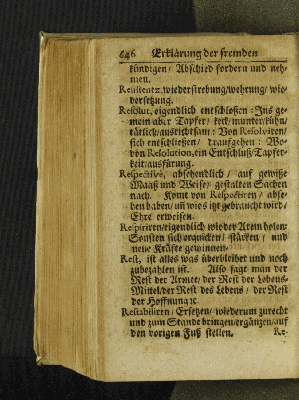 646 Erklärung der fremden
kündigen / Abschied fordern und neh-
men.
Resistentz, wiederstrebung / wehrung / wie-
dersetzung.
Resolut, eigendlich entschloßen: Jns ge-
mein aber Tapfer / keck / munter / kühn /
tätlich / ausrichtsam: Von Resolviren /
sich entschließen / draufgehen: Wo-
von Resolution, ein Entschluß / Tapfer-
keit / ausfürung.
Respective, absehendlich / auf gewiße
Maaß und Weise / gestalten Sachen
nach. Komt von Respectiren / abse-
hen haben / uñ wies itzt gebraucht wird /
Ehre erweisen.
Respiriren / eigendlich wieder Atem holen:
Sonsten sich erquicken / stärken / und
neue Kräfte gewinnen.
Rest, ist alles was überbleibet und noch
zubezahlen ist. Also sagt man der
Rest der Armee / der Rest der Lebens-
Mittel / der Rest des Lebens / der Rest
der Hoffnung ꝛc.
Restabiliren / Ersetzen / wiederum zurecht
und zum Stande bringen / ergänzen / auf
den vorigen Fuß stellen. Re-